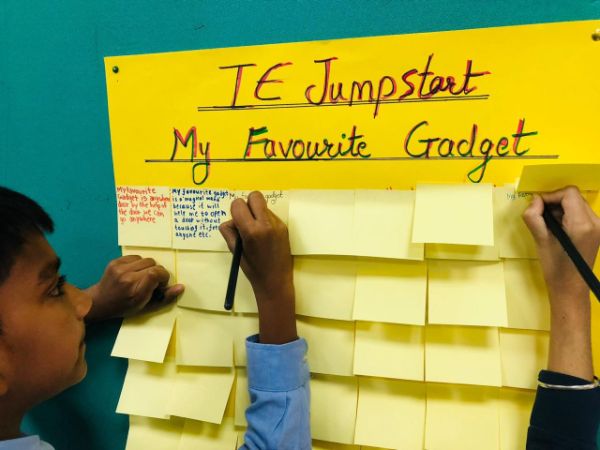 IE Jumpstart
My Favourite Gadget
My favourite
Gadget is anywhere
door by the help of
the door we can
go anywhere
My favourite gadget
is a magical wand
because it will
help me to open
a door without
touching it, free
anyone etc.
My gadget